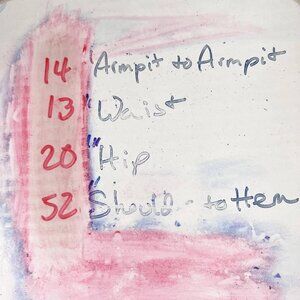 14" Armpit to Armpit
13" Waist
20" Hip
52" Shoulder to Hem